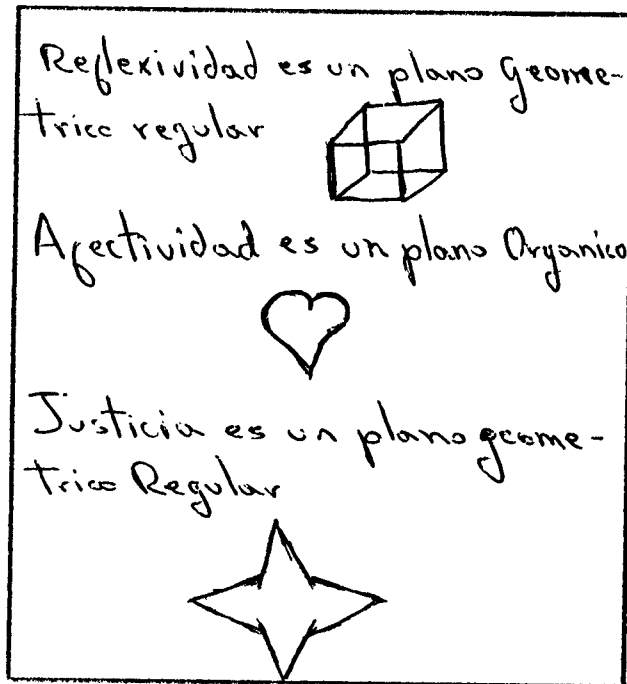 Reflexividad es un plano Geome-
trico regular
Afectividad es un plano Organico
Justicia es un plano geome-
trico Regular